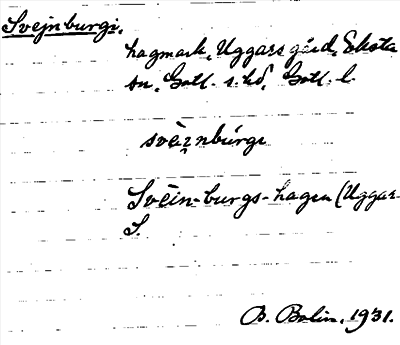 Svejnburgi.
hagmark, Uggars gård, Eksta
sn, Gotl. s. hd, Gotl. l.
svèi̯nbúrgι
Svèin-burgs-hagen (Uggar-
S.
B. Bolin. 1931.